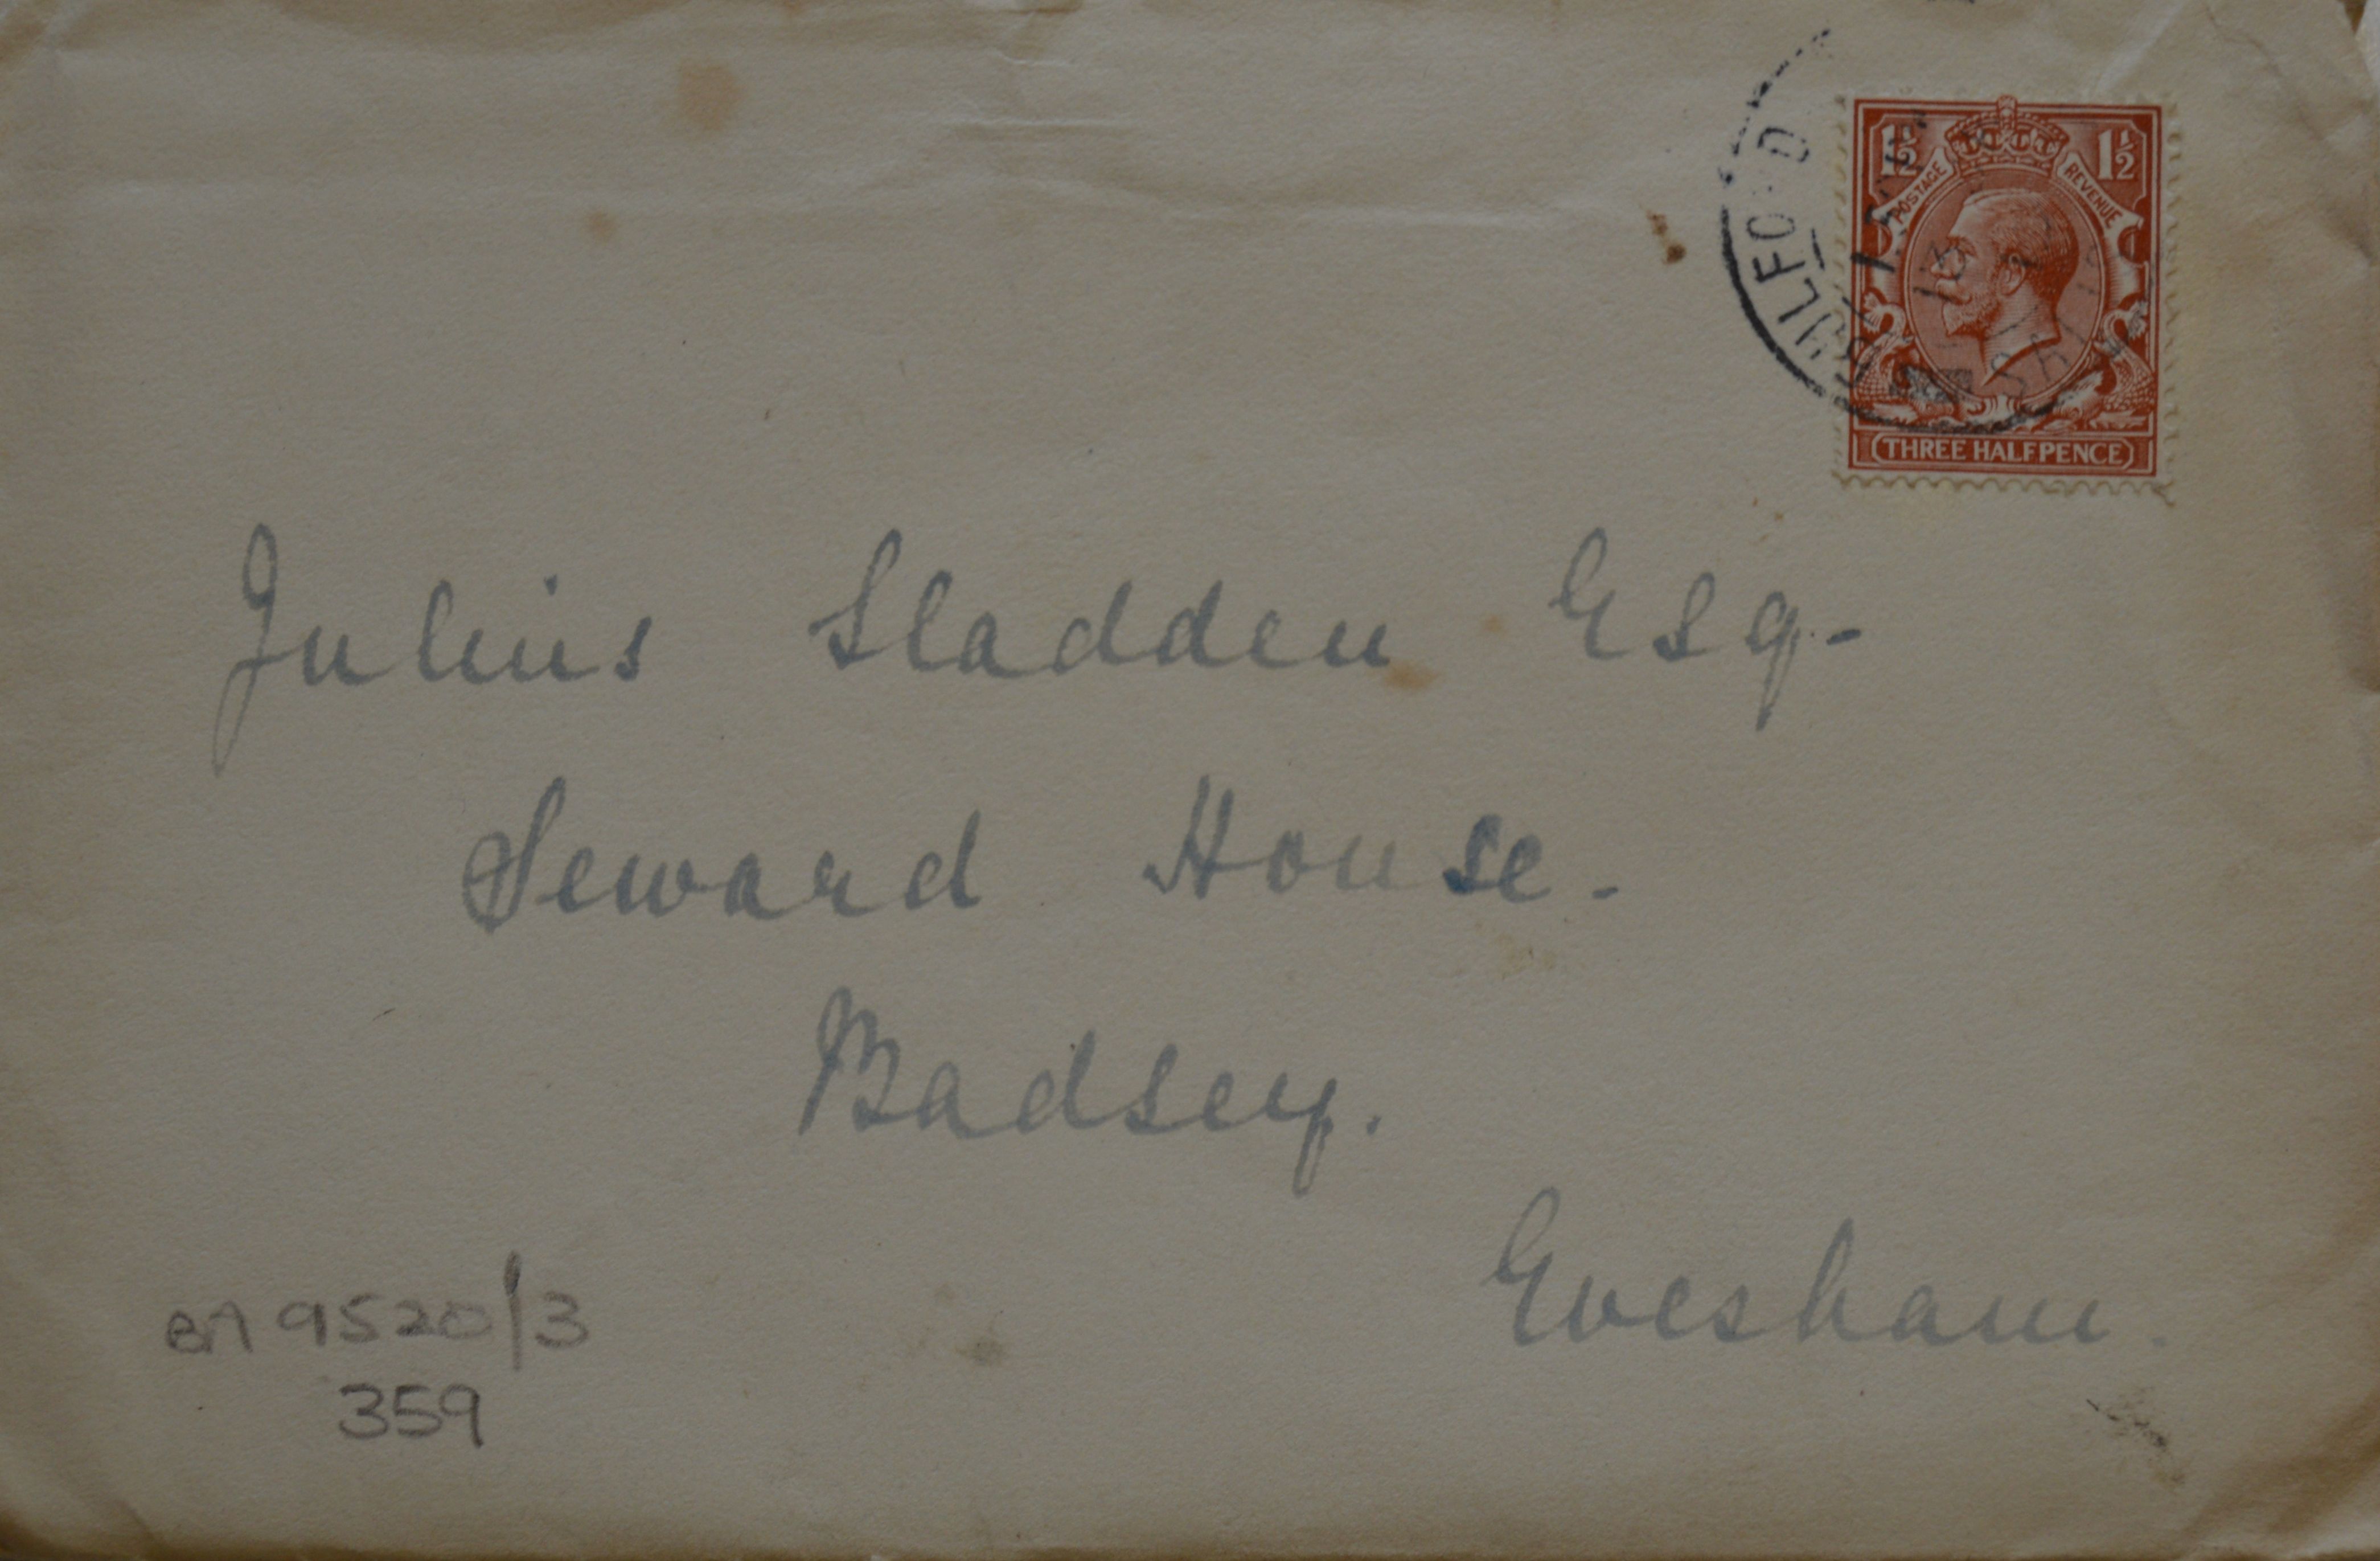 1½ 1½
POSTAGE REVENUE
BULFORD
13
SALIS
THREE HALFPENCE
Julius Sladden Esq-
Seward House.
Badsey.
Evesham.
BA 9520/3
359